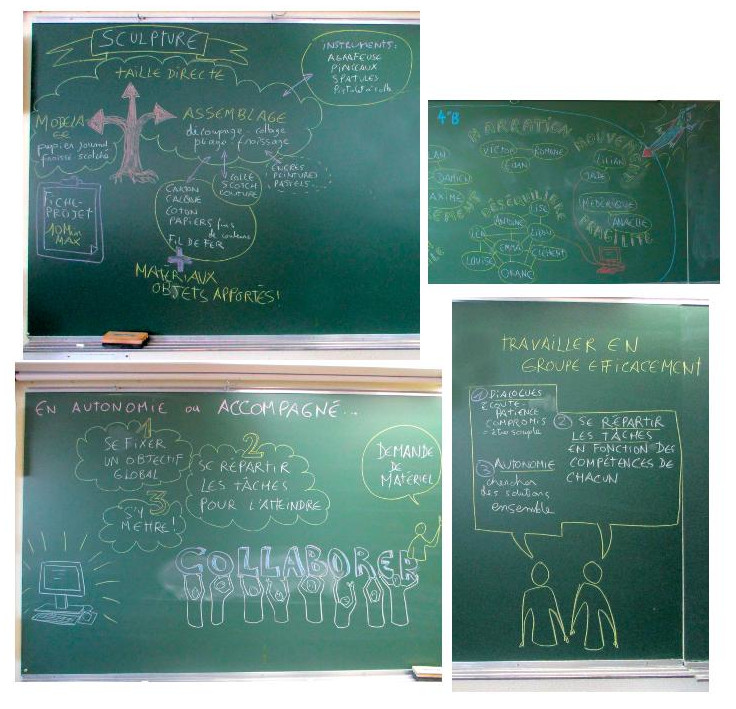 SCULPTURE
TAILLE DIRECTE
INSTRUMENTS:
AGRAFEUSE
PINCEAUX
SPATULES
MODELA
GE
papier journal
froissé scotché
ASSEMBLAGE
découpage - collage
pliage - froissage
ENCRES
PEINTURES
PASTELS
COLLE
SCOTCH
COUTURE
CARTON
CALQUE
COTON
PAPIERS fins
de couleurs
FIL DE FER
+
MATÉRIAUX
OBJETS APPORTÉS!
FICHE-
PROJET
10 Min
MAX
4°B
NARRATION
VICTOR
ROMANE
MOUVEMENT
LILIAN
JADE
DAMIEN
AXIME
EMENT
DESÉQUILIBRE
LISE
ANTOINE
LEA
LILOU
EMMA
CLÉMENT
LOUISE
MEDERIQUE
ANAELLE
FRAGILITE
EN AUTONOMIE ou ACCOMPAGNÉ...
1
SE FIXER
UN OBJECTIF
GLOBAL
2
SE RÉPARTIR
LES TÂCHES
POUR L'ATTEINDRE
3
S'Y
METTRE!
DEMANDE
DE
MATÉRIEL
COLLABORER
TRAVAILLER EN
GROUPE EFFICACEMENT
1 DIALOGUES
ÉCOUTE-
PATIENCE
COMPROMIS
= être souple
2 SE RÉPARTIR
LES TÂCHES
EN FONCTION DES
COMPÉTENCES DE
CHACUN
3 AUTONOMIE
chercher
des solutions
ensemble